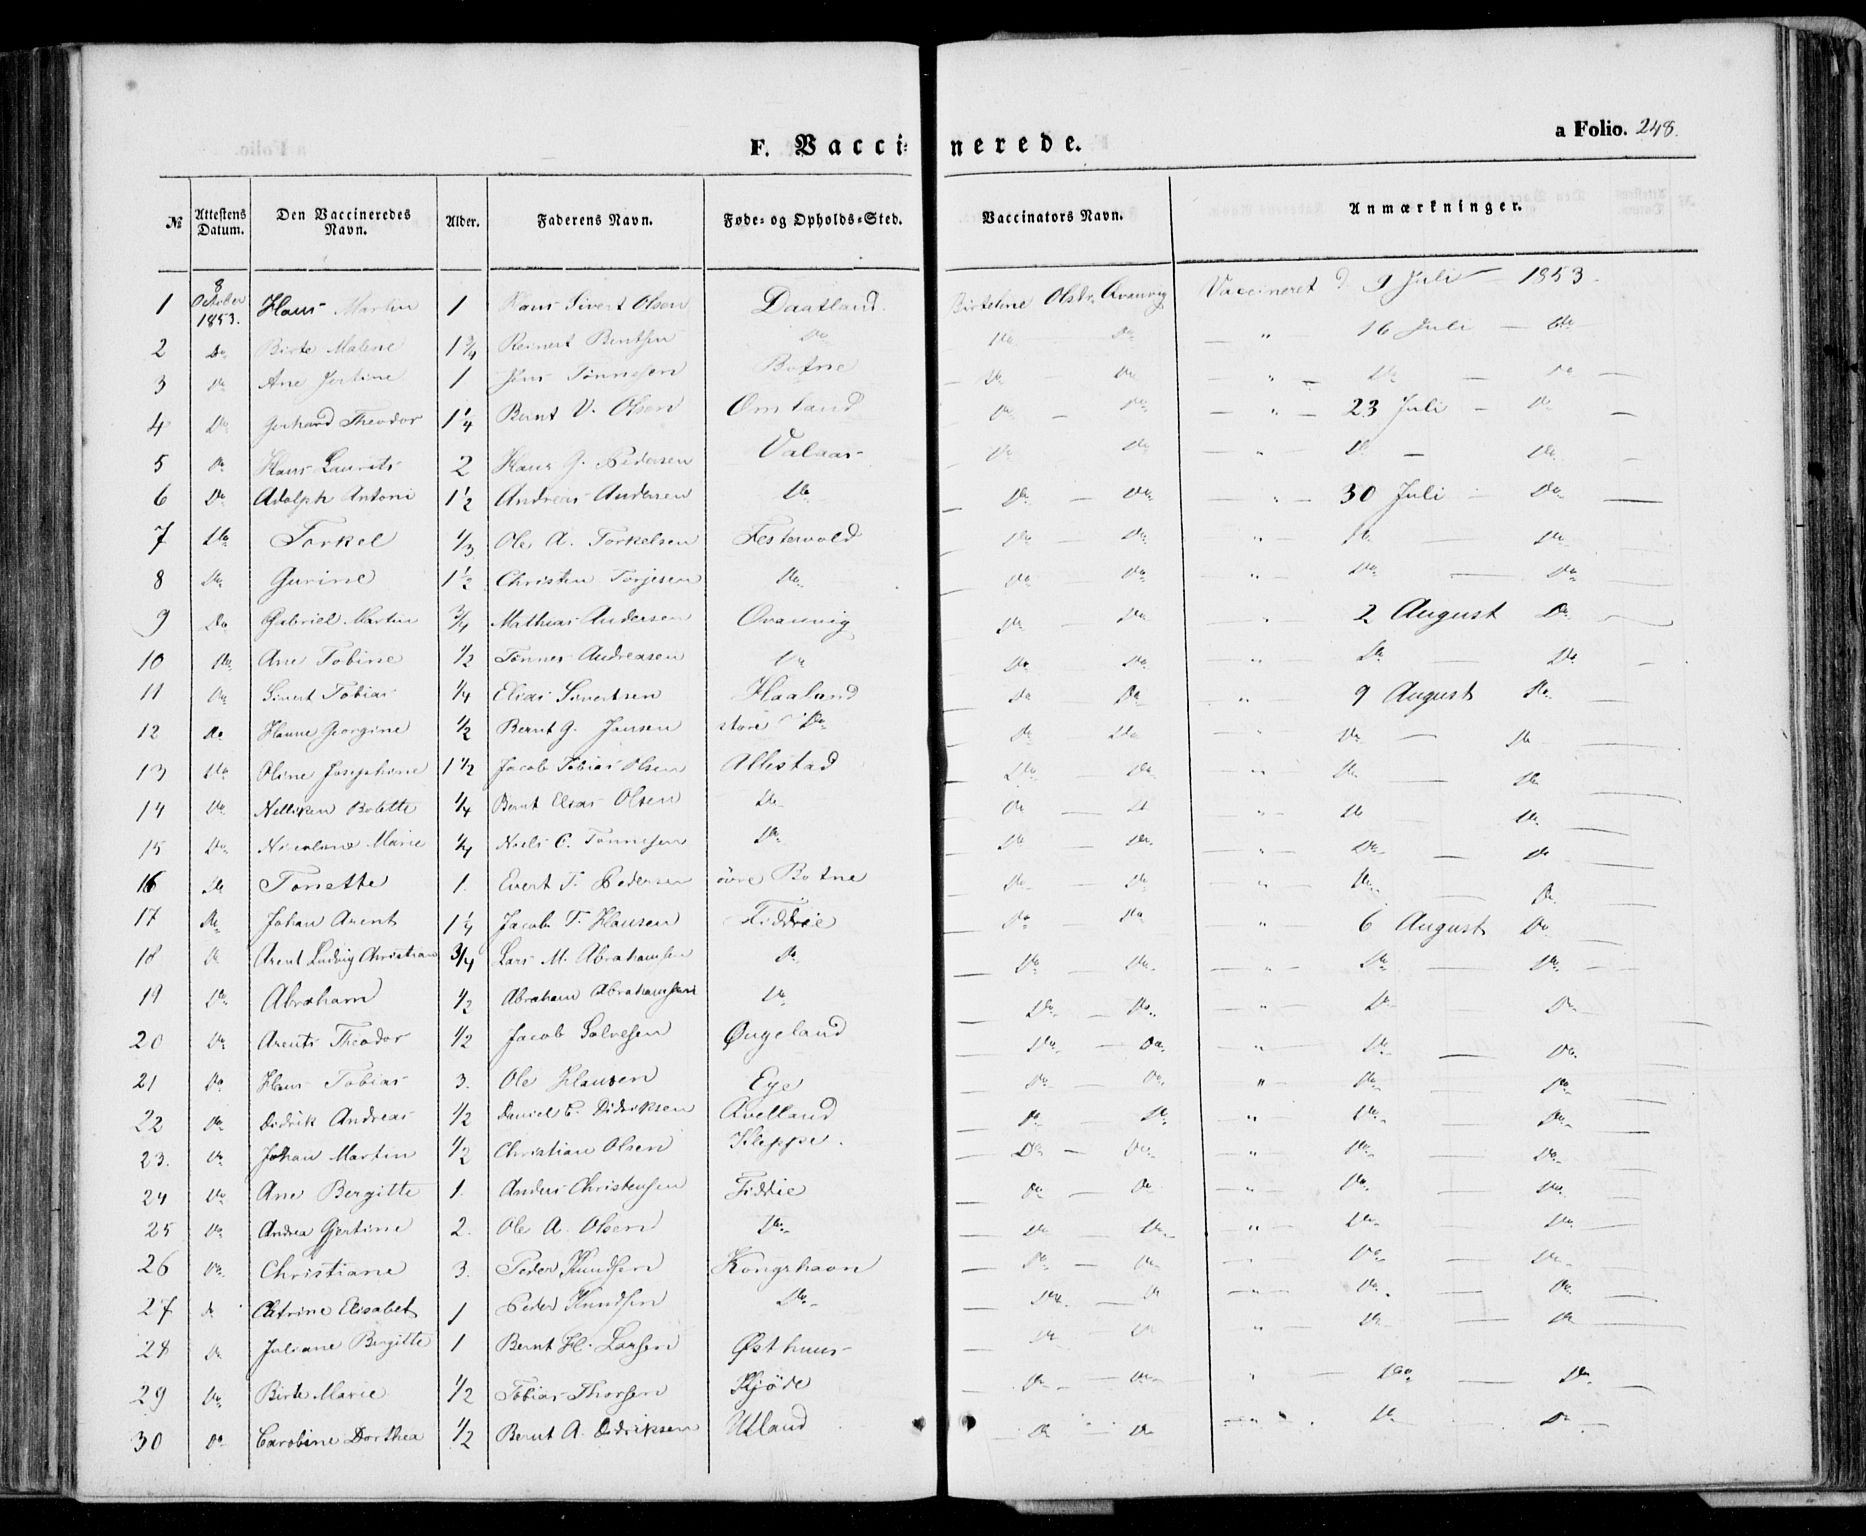 a Folio. 248.
F. Vaccinerede.
№ Attestens Datum. Den Vaccineredes Navn. Alder. Faderens Navn. Føde- og Opholds-Sted. Vaccinators Navn. Anmærkninger.
1 8 October 1853. Hans Martin 1 Hans Sivert Olsen Daatland. Qvanvig Vaccineret d 9 Juli 1853.
2 Do Birte Malene 1 3/4 Reinert Bentsen Do Do Do " 16 Juli Do
3 Do Ane 1 Jens Tønnesen Botne Do Do " Do Do
4 Do Gerhard Theodor 1 1/4 Bernt V. Olsen Omland Do Do " 23 Juli Do
5 Do Hans Laurits 2 Hans G. Pedersen Valaas Do Do " Do Do
6 Do Adolph Antoni 1 1/2 Andreas Andersen Do Do Do " 30 Juli Do
7 Do Torkel 1/3 Ole A. Torkelsen Festervold Do Do " Do Do
8 Do Gurine 1 1/2 Christen Torjesen Do Do Do " Do Do
9 Do Gabriel Martin 3/4 Mathias Andersen Qvanvig Do Do " 2 August Do
10 Do Ane Tobine 1/2 Tønnes Andreasen Do Do Do " Do Do
11 Do Sivert Tobias 1/4 Elias Sivertsen Haaland Do Do " 9 August Do
12 Do Hanne Georgine 1/2 Bernt G. Jansen store Do Do Do Do Do
13 Do Oline Josephine 1 1/2 Jacob Tobias Olsen Allestad Do Do " Do Do
14 Do Nelliken Bolette 1/4 Bernt Elias Olsen Do Do Do " Do Do
15 Do Nicoline Marie 1/4 Niels C. Tønnesen Do Do Do " Do Do
16 Do Tonette 1. Evert T. Pedersen øvre Botne Do Do " Do Do
17 Do Johan Arent 1 1/4 Jacob T. Hansen Fiddie Do Do " 6 August Do
18 Do Arent Ludvig Christian 3/4 Lars M. Abrahamsen Do Do Do " Do Do
19 Do Abraham 1/2 Abraham Abrahamsen Do Do Do " Do Do
20 Do Arents Theodor 1/2 Jacob Salvesen Øngeland Do Do " Do Do
21 Do Hans Tobias 3. Ole Hansen Eye Do Do " Do Do
22 Do Didrik Andreas 1/2 Daniel C. Didriksen Avelland Do Do " Do Do
23. Do Johan Martin 1/2 Christian Olsen Kleppe. Do Do " Do Do
24 Do Ane Bergitte 1. Anders Christensen Fiddie Do Do " Do Do
25 Do Andrea Gjertine 2. Ole A. Olsen Do Do Do " Do Do
26 Do Christiane 3. Peder Knudsen Kongshavn Do Do " Do Do
27 Do Elisabet 1 Peder Knudsen Do Do Do " Do Do
28 Do Juliane Bergitte 1 Bernt H. Larsen Østhuus Do Do " Do Do
29 Do Birte Marie 1/2 Tobias Thorsen Do Do " Do Do
30 Do Caroline Dorthea 1/2 Bernt A. Didriksen Utland Do Do " Do Do